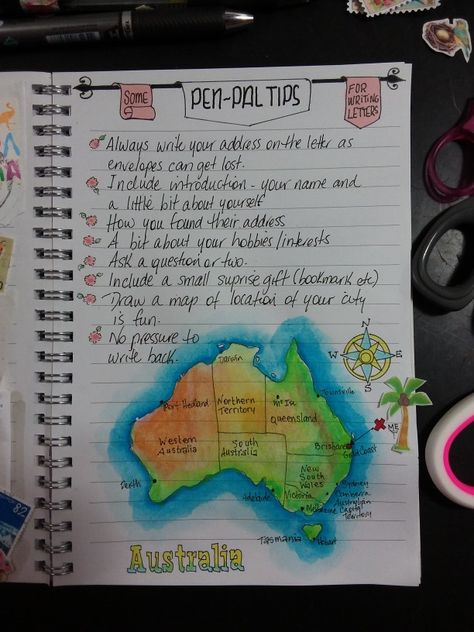 SOME
PEN-PAL TIPS
FOR
WRITING
LETTERS
Always write your address on the letter as
envelopes can get lost.
Include introduction - your name and
a little bit about yourself
How you found their address
A bit about your hobbies/interests
Ask a question or two.
Include a small suprise gift (bookmark etc)
Draw a map of location of your city
is fun.
No pressure to
write back.
N
W E
S
Darwin
Port Hedland
Northern
Territory
Mt Isa
Queensland
Townsville
ME
Western
Australia
South
Australia
Brisbane
Gold Coast
New
South
Wales
Perth
Adelaide
Victoria
Sydney
Canberra
Australian
Capital
Territory
Melbourne
Tasmania
Hobart
Australia
82